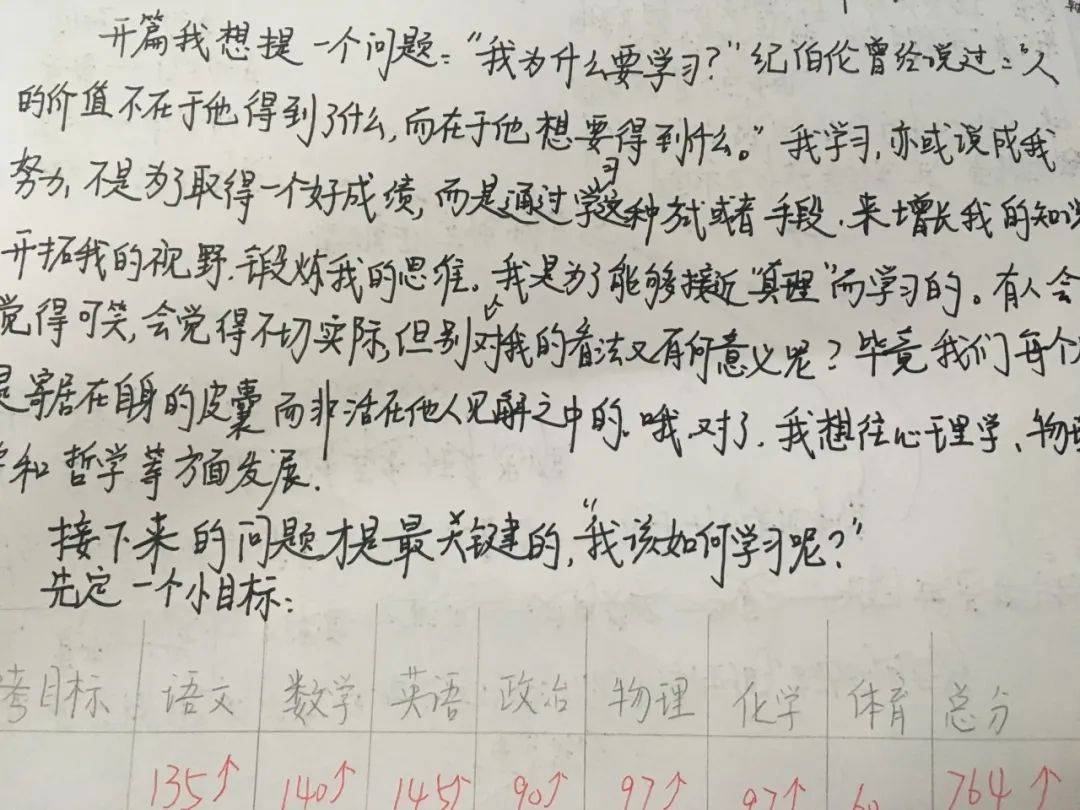 开篇我想提一个问题:“我为什么要学习?”纪伯伦曾经说过:“人
的价值不在于他得到了什么,而在于他想要得到什么。”我学习,亦或说成我
努力,不是为了取得一个好成绩,而是通过学习这种方式或者手段.来增长我的知识
开拓我的视野.锻炼我的思维。我是为了能够接近“真理”而学习的。有人会
觉得可笑,会觉得不切实际,但别人对我的看法又有何意义呢?毕竟我们每个
是寄居在自身的皮囊而非活在他人见解之中的.哦.对了.我想往心理学、物理
学和哲学等方面发展.
接下来的问题才是最关键的,“我该如何学习呢?”
先定一个小目标:
考目标 语文 数学 英语 政治 物理 化学 体育 总分
135↑ 140↑ 145↑ 90↑ 97↑ 97↑ 60 764↑